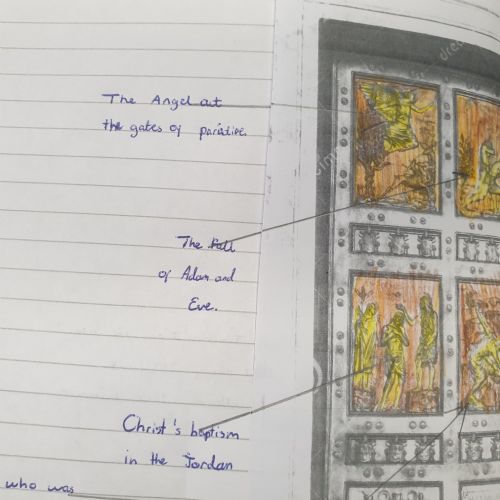 The Angel at
the gates of paridise.
The Fall
of Adam and
Eve.
Christ's baptism
in the Jordan
who was